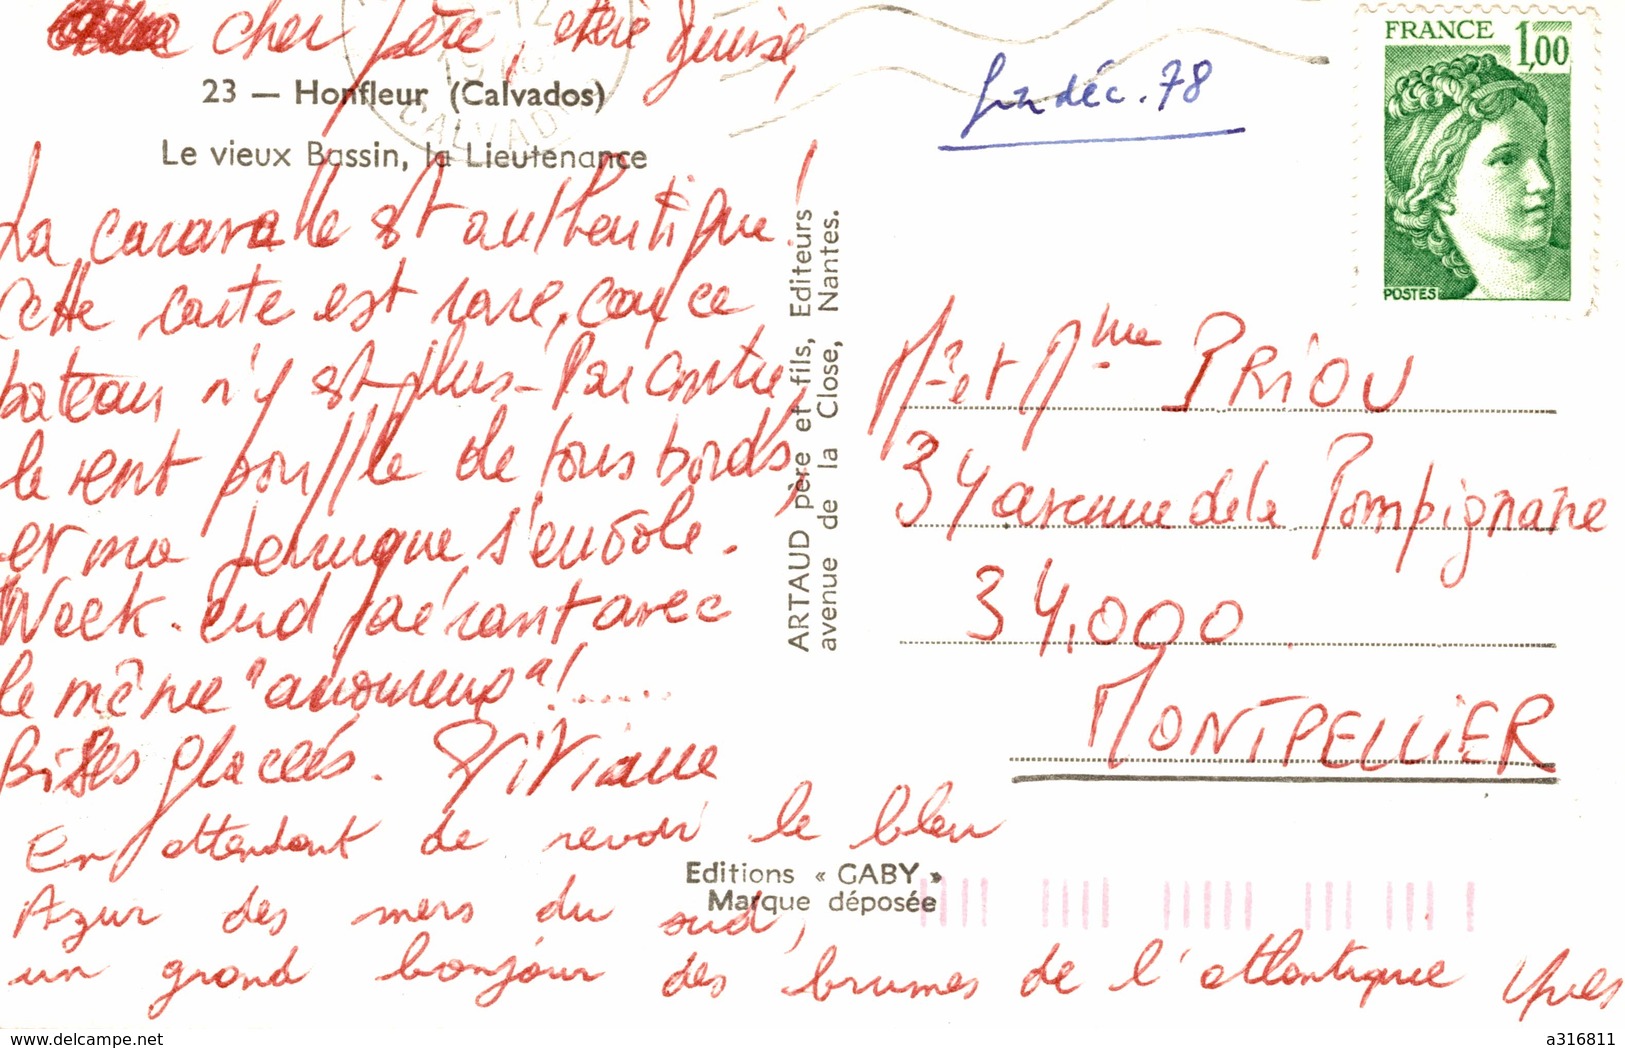 cher père, chère Denise,
23 — Honfleur (Calvados)
CALVADOS
Le vieux Bassin, la Lieutenance
La caravelle est authentique !
Cette carte est rare, car ce
bateau n'y est plus - Par contre,
le vent souffle de tous bords,
et ma perruque s'envole.
Week-end aérant avec
le même "amoureux" !......
Bises glacées. Viviane
En attendant de revoir le bleu
Azur des mers du sud,
un grand bonjour des brumes de l'atlantique Yves
ARTAUD père et fils, Editeurs
avenue de la Close, Nantes.
Editions « GABY »
Marque déposée
fin déc. 78
FRANCE 1,00
POSTES
M. et Mme PRIOU
34 avenue de la Pompignane
34.000
MONTPELLIER
a316811